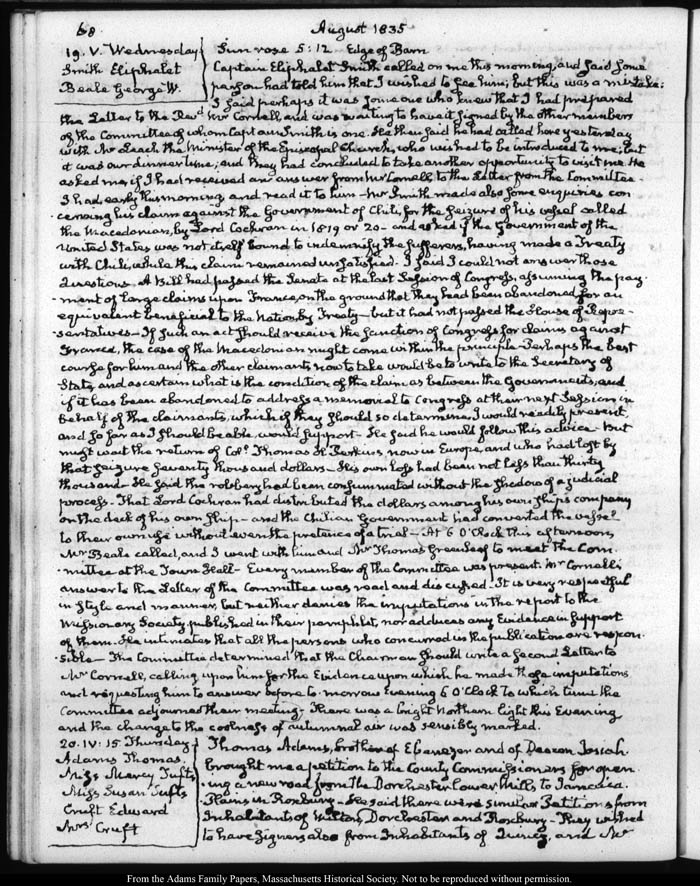 68 August 1835
19. V. Wednesday Sun rose 5:12 Edge of Barn
Smith Eliphalet Captain Eliphalet Smith called on me this morning, and said some
Beale George W. person had told him that I wished to see him; but this was a mistake:
I said perhaps it was some one who knew that I had prepared
the Letter to the Revd. Mr Cornell, and was waiting to have it signed by the other members
of the Committee of whom Captain Smith is one. He then said he had called here yesterday
with Mr Leach the Minister of the Episcopal Church, who wished to be introduced to me; but
it was our dinner time; and they had concluded to take another opportunity to visit me. He
asked me if I had received an answer from Mr Cornell to the Letter from the Committee.
I had, early this morning and read it to him. Mr Smith made also some enquiries con
cerning his claim against the Government of Chili, for the seizure of his vessel called
the Macedonian, by Lord Cochran in 1819 or 20 - and asked if the Government of the
United States was not itself bound to indemnify the sufferers, having made a Treaty
with Chili, while this claim remained unsatisfied. I said I could not answer those
Questions. A Bill had passed the Senate at the last Session of Congress, assuming the pay
ment of large claims upon France, on the ground that they had been abandoned for an
equivalent beneficial to the Nation, by Treaty - but it had not passed the House of Repre-
sentatives - If such an act should receive the sanction of Congress for claims against
France, the case of the Macedonian might come within the principle - Perhaps the best
course for him and the other claimants now to take would be to write to the Secretary of
State, and ascertain what is the condition of the claim as between the Governments, and
if it has been abandoned to address a memorial to Congress at their next Session, in
behalf of the claimants, which if they should so determine, I would readily present,
and so far as I should be able would support - He said he would follow this advice - But
must wait the return of Coll. Thomas H. Perkins, now in Europe, and who had lost by
that seizure seventy thousand dollars - His own loss had been not less than thirty
thousand. He said the robbery had been consummated without the shadow of a judicial
process. That Lord Cochran had distributed the dollars among his own ship's company
on the deck of his own ship - and the Chilian Government had converted the vessel
to their own use without even the pretence of a trial - At 6 O'Clock this afternoon,
Mr Beale called, and I went with him and Mr Thomas Greenleaf to meet the Com-
mittee at the Town Hall - Every member of the Committee was present. Mr Cornell's
answer to the Letter of the Committee was read and discussed. It is very respectful
in style and manner, but neither denies the imputations in the report to the
Missionary Society, published in their pamphlet, nor adduces any Evidence in support
of them. He intimates that all the persons who concurred in the publication are respon-
sible - The Committee determined that the Chairman should write a second Letter to
Mr Cornell, calling upon him for the Evidence upon which he made those imputations
and requesting him to answer before to-morrow Evening 6 O'Clock to which time the
Committee adjourned their meeting - There was a bright Northern light this Evening
and the change to the coolness of autumnal air was sensibly marked.
20. IV: 15 Thursday Thomas Adams, brother of Ebenezer and of Deacon Josiah
Adams Thomas. brought me a petition to the County Commissioners for open
Miss Marcy Tufts ing a new road from the Dorchester lower Mills to Jamaica
Miss Susan Tufts Plains in Roxbury - He said there were similar Petitions from
Cruft Edward Inhabitants of Milton, Dorchester and Roxbury - They wished
Mrs Cruft to have signers also from Inhabitants of Quincy, and Mr
From the Adams Family Papers, Massachusetts Historical Society. Not to be reproduced without permission.